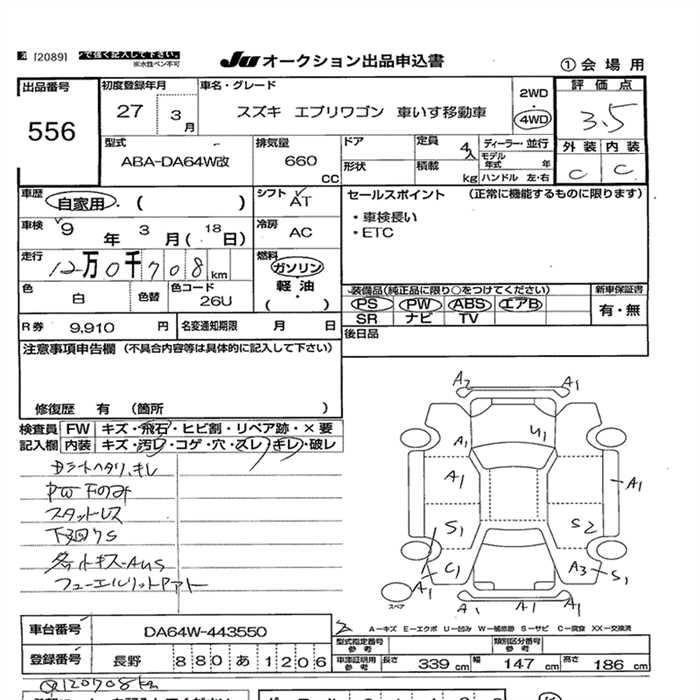 [2089]
で強く記入して下さい。
※水性ペン不可
Ju オークション出品申込書
① 会場用
出品番号
556
初度登録年月
27 3月
車名・グレード
スズキ エブリワゴン 車いす移動車
2WD
4WD
評価点
3.5
外装 内装
C C
型式
ABA-DA64W改
排気量
660 CC
ドア
形状
定員 4人
積載 kg
ディーラー・並行
モデル年式 年
ハンドル 左・右
車歴 自家用・( )
シフト AT
車検 9年 3月(18日)
冷房 AC
走行 12万0千708km
燃料 ガソリン
軽油
( )
色 白 色替
色コード 26U
R券 9,910 円
名変通知期限 月 日
セールスポイント (正常に機能するものに限ります)
・車検長い
・ETC
装備品(純正品に限り○をつけてください)
PS PW ABS エアB
SR ナビ TV
新車保証書
有・無
後日品
注意事項申告欄(不具合内容等は具体的に記入して下さい)
修復歴 有 (箇所 )
検査員記入欄
FW キズ・飛石・ヒビ割・リペア跡・×要
内装 キズ・汚レ・コゲ・穴・スレ・キレ・破レ
Dシートヘタリ、キレ
PW Fのみ
スタットレス
下廻りS
A2 A1
A1 U1
A1 A1
S1 S2
C1 A3 S1
A1 A1 A1 A1
スペア
A－キズ E－エクボ U－凹み W－補修跡 S－サビ C－腐食 XX－交換済
車台番号 DA64W-443550
登録番号 長野 880 あ 1206
型式指定番号 参考
類別区分番号 参考
車庫証明用 参考
長さ 339 cm 幅 147 cm 高さ 186 cm
120708km